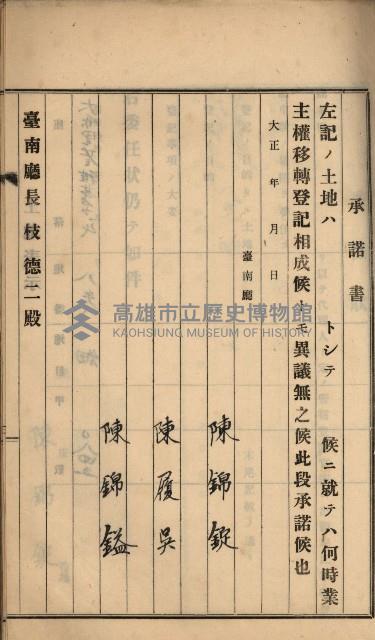 承諾書
左記ノ土地ハ　トシテ　候ニ就テハ何時業
主權移轉登記相成候トモ異議無之候此段承諾候也
大正　年　月　日
臺南廳
陳錦錠
陳履吳
陳錦鎰
臺南廳長枝德二殿
高雄市立歷史博物館
KAOHSIUNG MUSEUM OF HISTORY